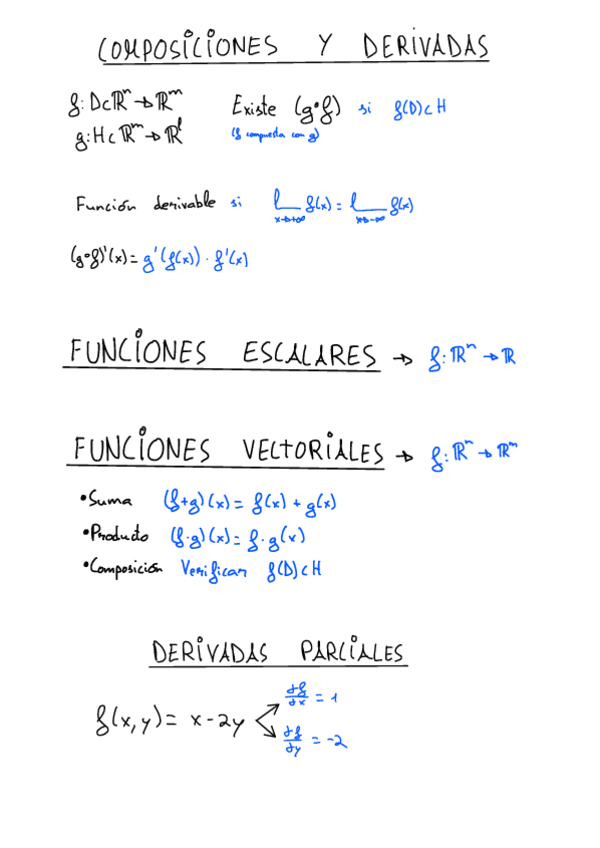 COMPOSICIONES Y DERIVADAS
f: D⊂ℝⁿ → ℝᵐ Existe (g∘f) si f(D)⊂H
g: H⊂ℝᵐ → ℝˡ (f compuesta con g)
Función derivable si l_{x→+∞} f(x) = l_{x→-∞} f(x)
(g∘f)'(x) = g'(f(x)) · f'(x)
FUNCIONES ESCALARES → f: ℝⁿ → ℝ
FUNCIONES VECTORIALES → f: ℝⁿ → ℝᵐ
•Suma (f+g)(x) = f(x) + g(x)
•Producto (f·g)(x) = f·g(x)
•Composición Verificar f(D)⊂H
DERIVADAS PARCIALES
∂f/∂x = 1
f(x,y) = x-2y
∂f/∂y = -2